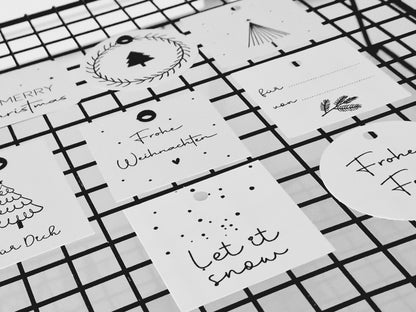 MERRY
Christmas
für
von
Frohe
Weihnachten
Frohe
F
Let it
snow